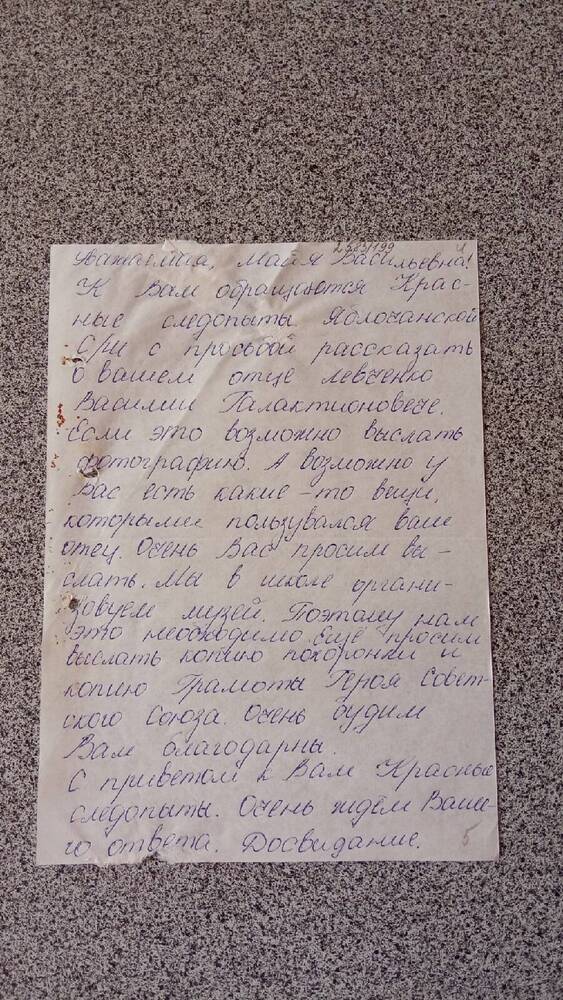 Уважаемая, Майя Васильевна!
К Вам обращаются Крас-
ные следопыты Яблочанской
с/ш с просьбой рассказать
о вашем отце Левченко
Василии Галактионовече.
Если это возможно выслать
фотографию. А возможно у
Вас есть какие-то вещи,
которыми пользувался ваш
отец. Очень Вас просим вы-
слать. Мы в школе органи-
зовуем музей. Поэтому нам
это необходимо. Ещё просим
выслать копию похоронки и
копию Грамоты Героя Совет-
ского Союза. Очень будим
Вам благодарны.
С приветом к Вам Красные
следопыты. Очень ждём Ваше-
го ответа. Досвидание.
5